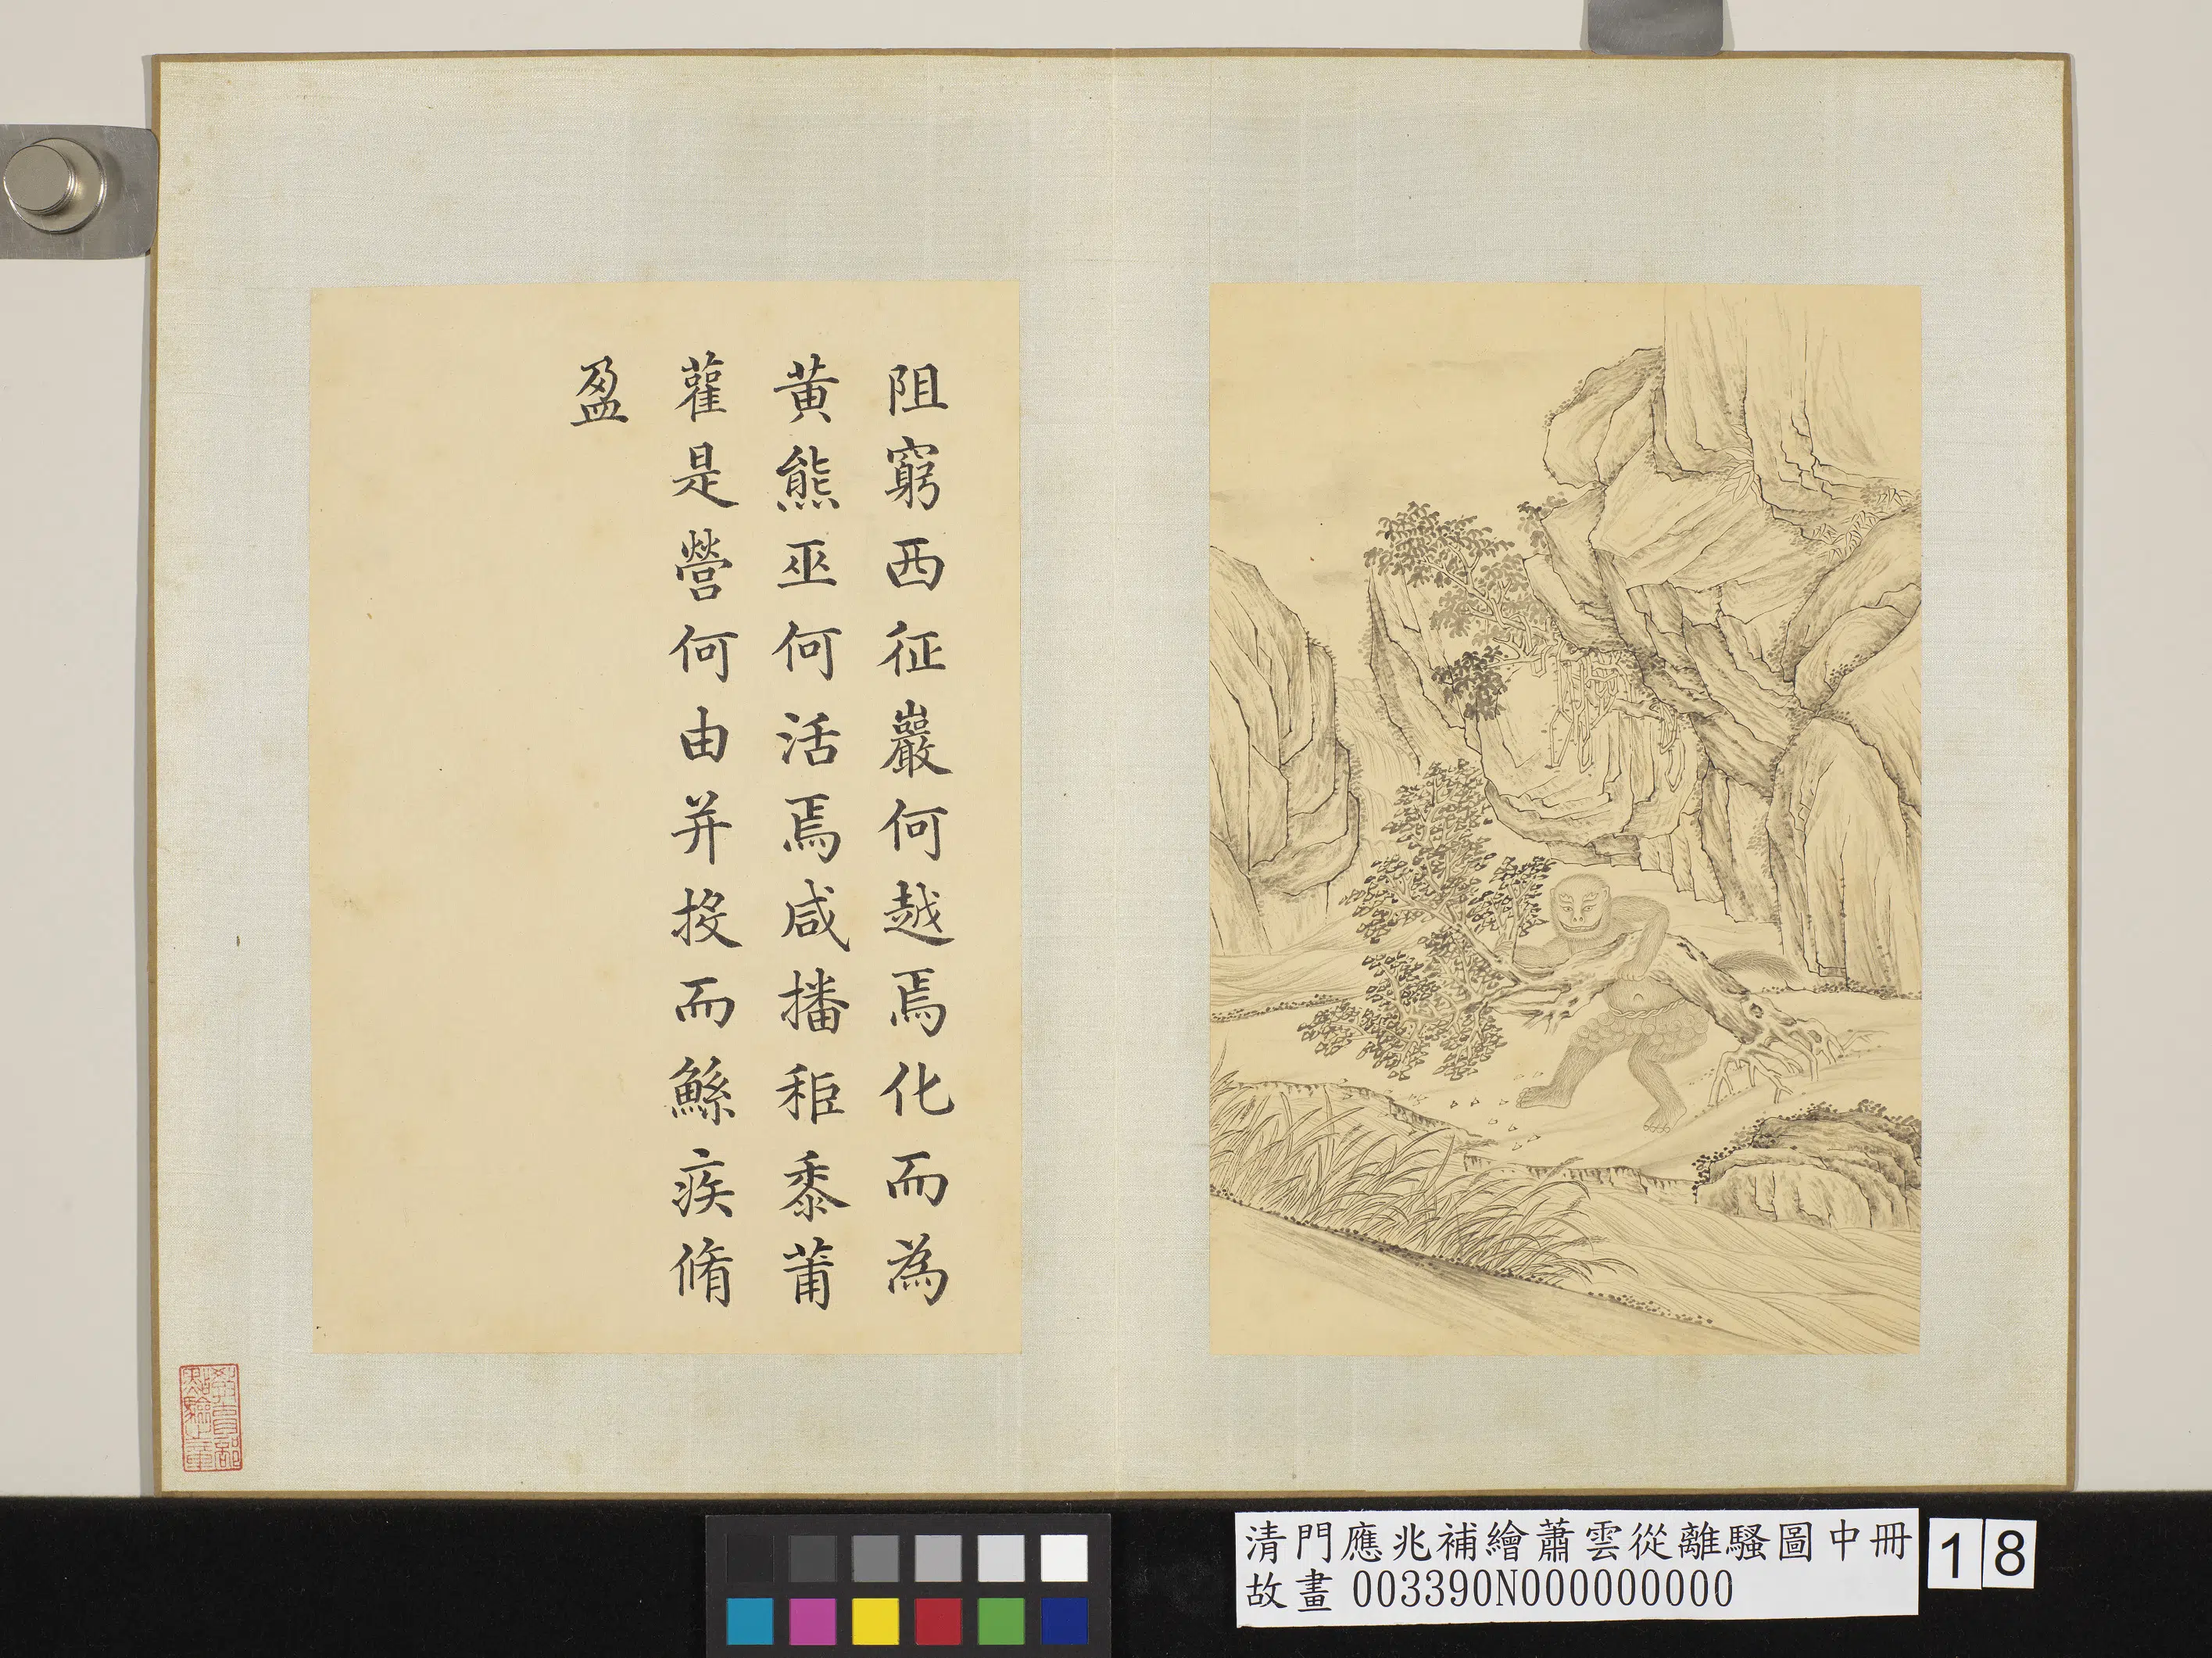 阻窮西征巖何越焉化而為
黃熊巫何活焉咸播秬黍莆
雚是營何由并投而鯀疾脩
盈
教育部
點驗之章
清門應兆補繪蕭雲從離騷圖中冊
故畫003390N000000000
18